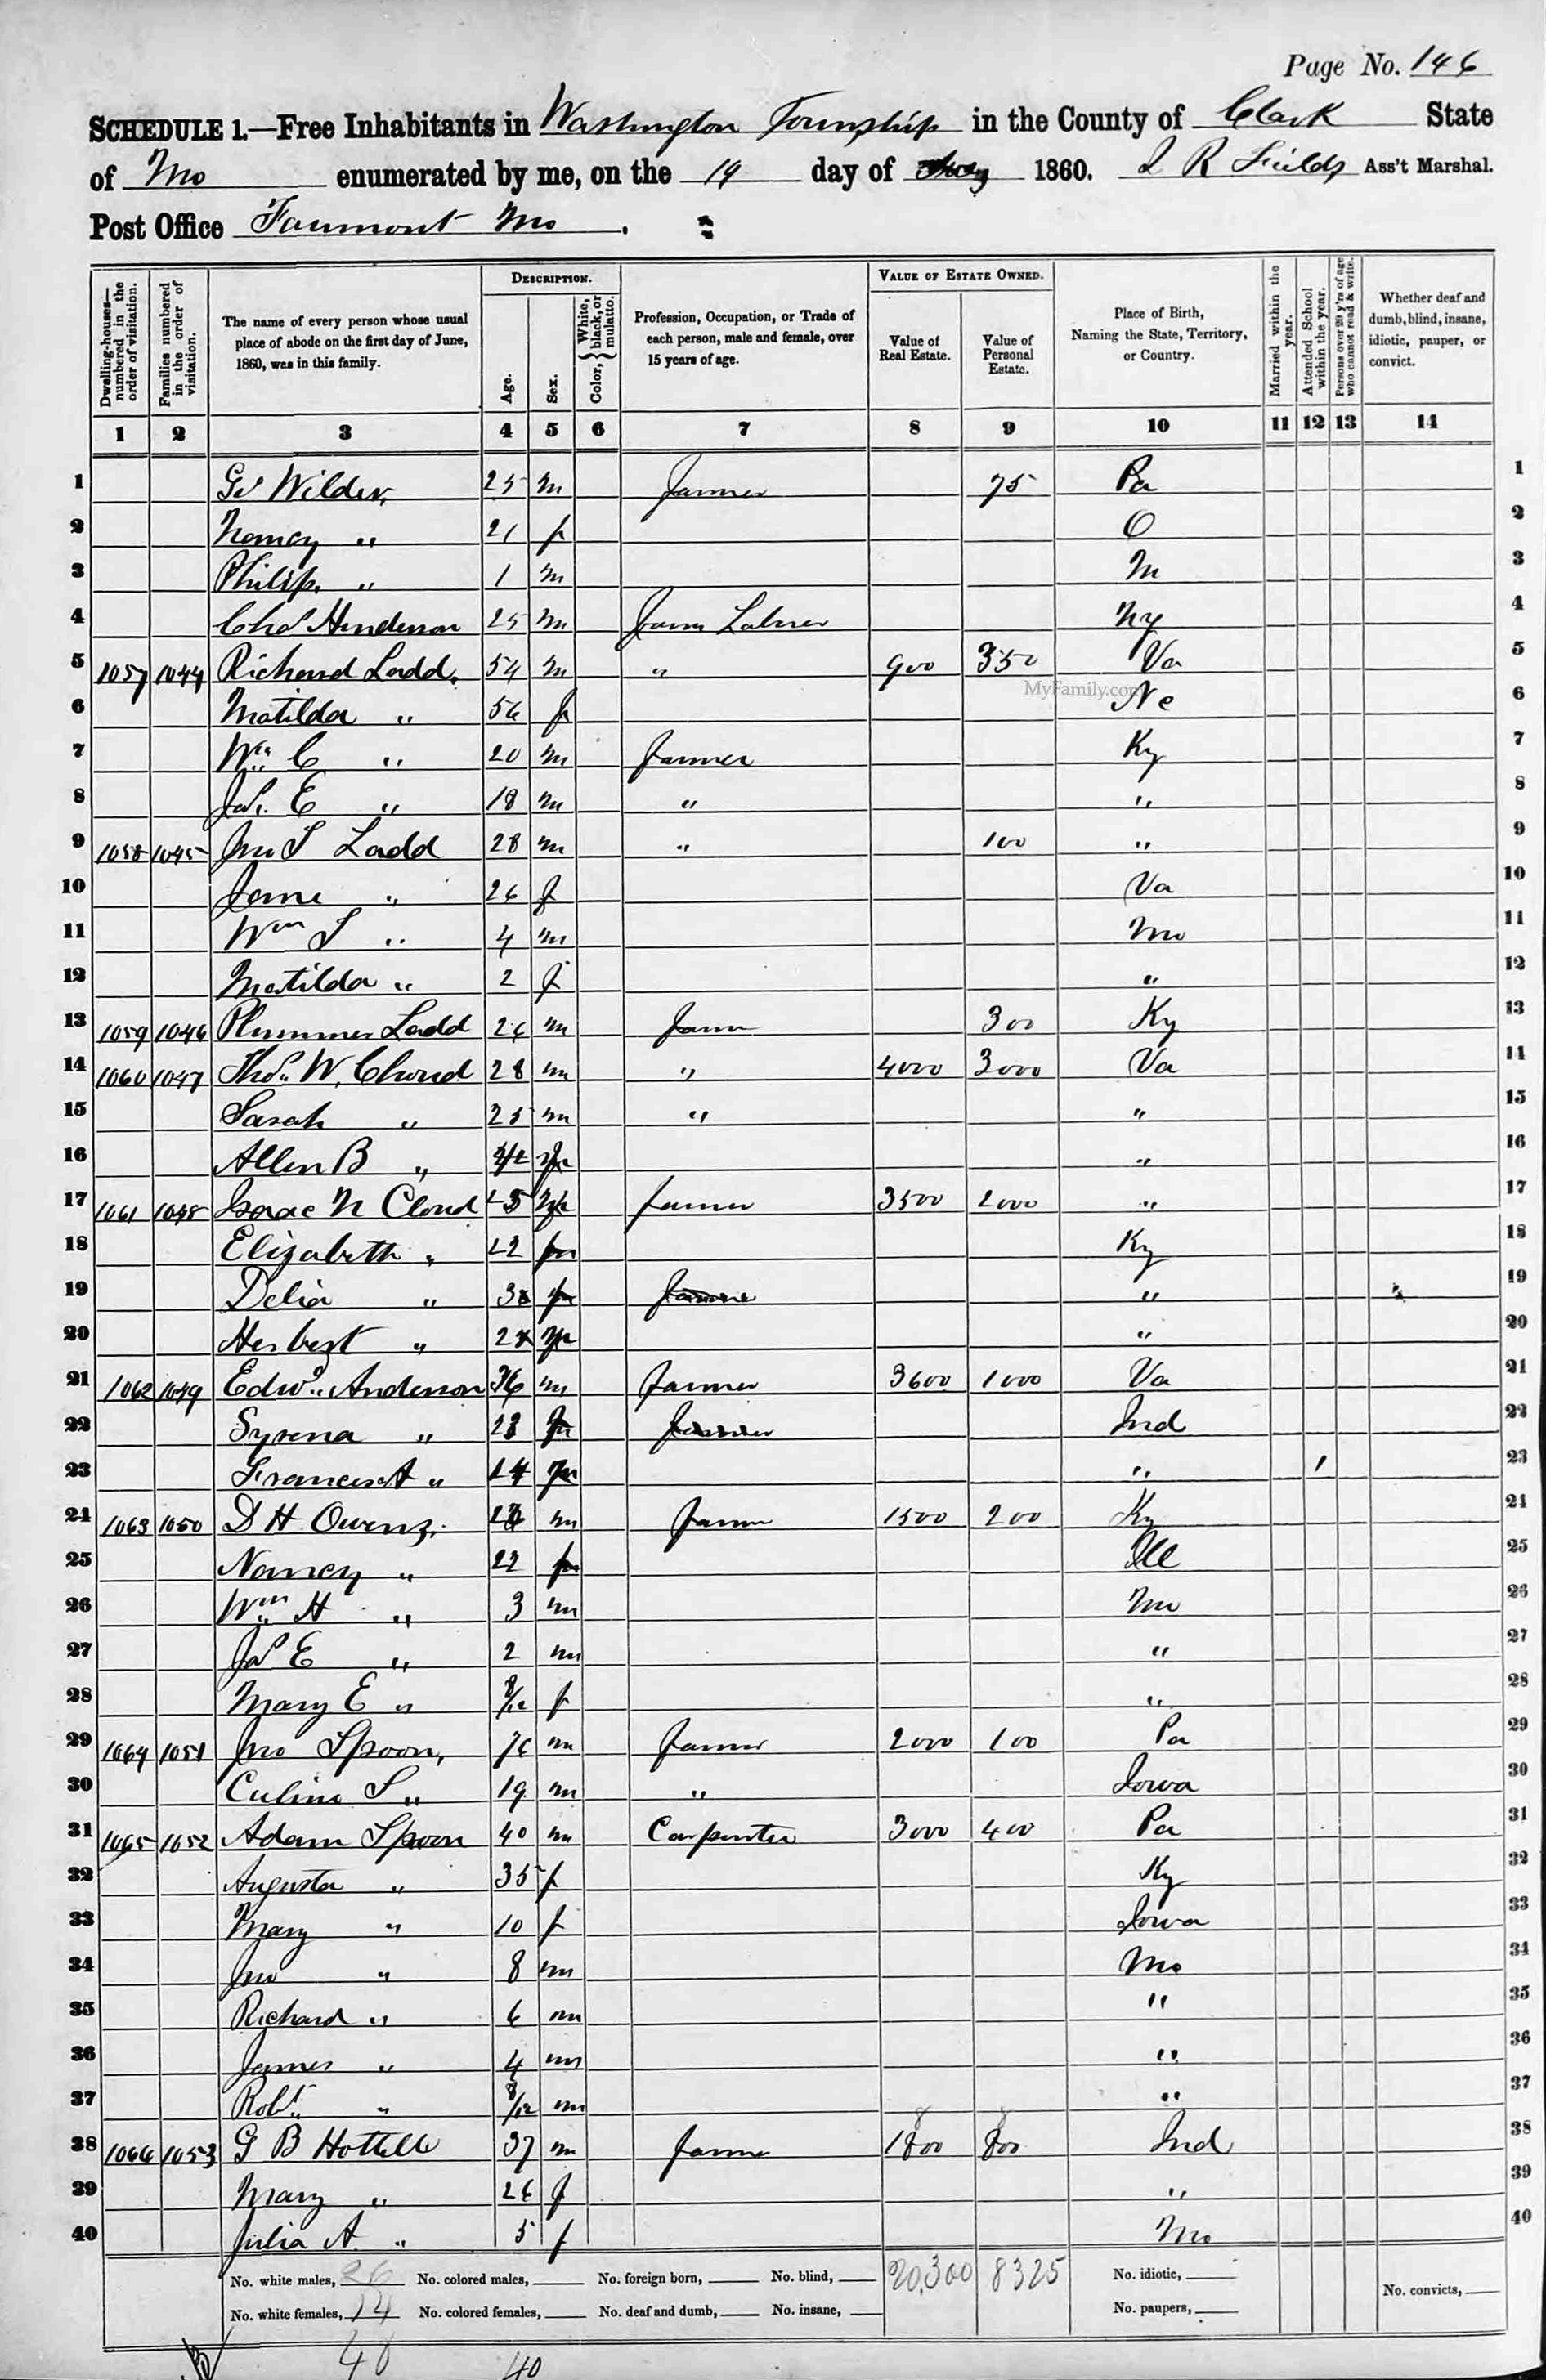 Page No. 146
SCHEDULE 1.—Free Inhabitants in Washington Township in the County of Clark State
of Mo enumerated by me, on the 19 day of 1860. Ass't Marshal.
Post Office Mo
DESCRIPTION. VALUE OF ESTATE OWNED.
Dwelling-houses—numbered in the order of visitation.
Families numbered in the order of visitation.
The name of every person whose usual place of abode on the first day of June, 1860, was in this family.
Age.
Sex.
Color, { White, black, or mulatto.
Profession, Occupation, or Trade of each person, male and female, over 15 years of age.
Value of Real Estate.
Value of Personal Estate.
Place of Birth, Naming the State, Territory, or Country.
Married within the year.
Attended School within the year.
Persons over 20 y'rs of age who cannot read & write.
Whether deaf and dumb, blind, insane, idiotic, pauper, or convict.
1 2 3 4 5 6 7 8 9 10 11 12 13 14
1 Wilder, 25 m Farmer 75 Pa 1
2 Nancy " 21 f O 2
3 Philip " 1 m M 3
4 Chas Henderson 25 m Farm Labrer NY 4
5 1057 1044 Richard Ladd, 54 m " 900 350 Va 5
MyFamily.com
6 Matilda " 56 f 6
7 Wm C " 20 m Farmer Ky 7
8 Jas. E " 18 m " " 8
9 1058 1045 Jno S Ladd 28 m " 100 " 9
10 Jane " 26 f Va 10
11 Wm S " 4 m Mo 11
12 Matilda " 2 f " 12
13 1059 1046 Plummer Ladd 26 m Farm 300 Ky 13
14 1060 1047 Thos. W. Cloud 28 m " 4000 3000 Va 14
15 Sarah " 25 m " " 15
16 Allen B " " 16
17 1061 1048 Isaac N Cloud Farmer 3500 2000 " 17
18 Elizabeth " 22 Ky 18
19 Delia " 3 " 19
20 Herbert " 2 " 20
21 1062 1049 Edwd. Anderson 36 m Farmer 3600 1000 Va 21
22 Syrena " Farmer Ind 22
23 Francis A " 14 " / 23
24 1063 1050 D H Owens, m Farm 1500 200 Ky 24
25 Nancy " 22 f Ill 25
26 Wm H " 3 m Mo 26
27 Jas E " 2 m " 27
28 Mary E " 8/12 f " 28
29 1064 1051 Jno Spoon, 76 m Farmer 2000 100 Pa 29
30 S " 19 m " Iowa 30
31 1065 1052 Adam Spoon 40 m Carpenter 3000 400 Pa 31
32 Augusta " 35 f Ky 32
33 Mary " 10 f Iowa 33
34 Jno " 8 m Mo 34
35 Richard " 6 m " 35
36 James " 4 m " 36
37 Robt. " 8/12 m " 37
38 1066 1053 G B Hottell 37 m Farmer 1800 800 Ind 38
39 Mary " 26 f " 39
40 Julia A. " 5 f Mo 40
No. white males, 26 No. colored males, No. foreign born, No. blind, 20,300 8325 No. idiotic,
No. white females, 14 No. colored females, No. deaf and dumb, No. insane, No. paupers, No. convicts,
40 40